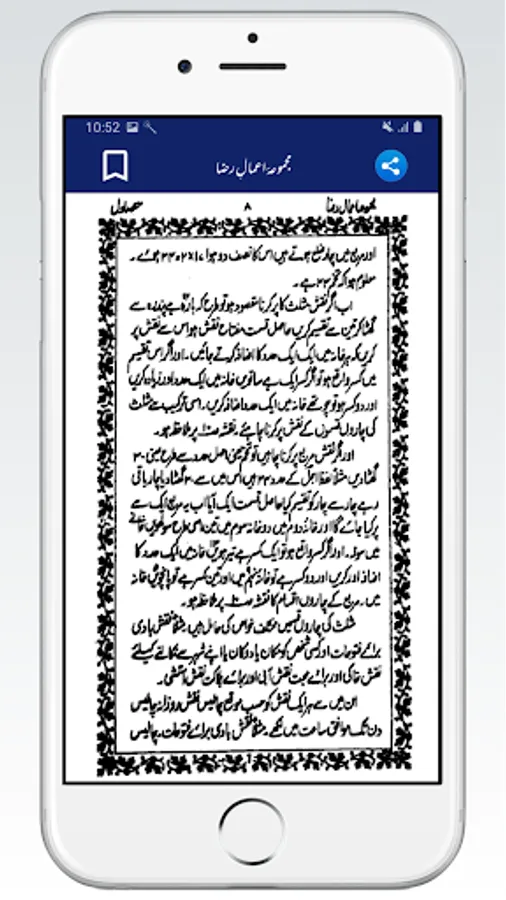 10:52
مجموعۂ اعمالِ رضا
مجموعہ اعمال رضا ۸ حصہ اول
اور مربع میں چار ضلع ہوتے ہیں اس کا نصف دو ہوا ۱۷×۲=۳۴ ہوئے۔
معلوم ہوا کہ تحر ۳۴ ہے۔
اب اگر نقش مثلث کا پر کرنا مقصود ہو تو طرح کہ بارہ ہے پندرہ سے
گھٹا کر تین سے تقسیم کریں حاصل قسمت مفتاح نقش ہو اس سے نقش پر
کریں کہ ہر خانہ میں ایک ایک عدد کا اضافہ کرتے جائیں۔ اور اگر اس تقسیم
میں کسر واقع ہو تو اگر کسر ایک ہے ساتویں خانہ میں ایک عدد اور زیادہ کریں
اور دو کسر ہو تو چوتھے خانہ میں ایک عدد اضافہ کریں۔ اسی ترکیب سے مثلث
کی چاروں قسموں کے نقش پر کرنا چاہئے۔ نقشہ پر ملاحظہ ہو۔
اور اگر نقش مربع پر کرنا چاہیں تو تحر یعنی اصل عدد سے طرح یعنی ۳۰
گھٹا دیں مثلاً لفظ اجل کے عدد ۳۴ ہیں اس میں سے ۳۰ گھٹا دیا چار باقی
رہے چار سے چار کو تقسیم کیا حاصل قسمت ایک آیا اب یہ مربع ایک سے
پر کیا جائے گا اور خانہ دوم میں دو خانہ سوم میں تین اسی طرح سولھویں خانے
میں سولہ۔ اور اگر کسر واقع ہو تو ایک کسر ہے تیرہویں خانہ میں ایک عدد کا
اضافہ اور کریں اور دو کسر ہے تو خانہ نہم میں اور تین کسر ہے تو پانچویں خانہ
میں۔ مربع کے چاروں اقسام کا نقشہ پر ملاحظہ ہو۔
مثلث کی چاروں قسمیں مختلف خواص کی حامل ہیں مثلاً نقش بادی
برائے فتوحات اور کسی شخص کو مکان یا دکان یا اپنے شہر سے نکالنے کیلئے
نقش خاکی اور برائے محبت نقش آبی اور برائے ہلاک نقش آتشی۔
ان میں سے ہر ایک نقش کو حسب موقع چالیس نقش روزانہ چالیس
دن تک موافق ساعت میں لکھے مثلاً نقش بادی برائے فتوحات۔ چالیس